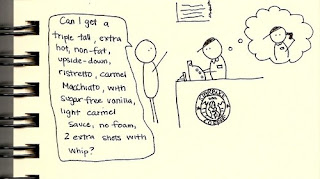 Can I get a
triple tall, extra
hot, non-fat,
upside-down,
ristretto, carmel
Macchiato, with
sugar free vanilla,
light carmel
sauce, no foam,
2 extra shots with
whip?